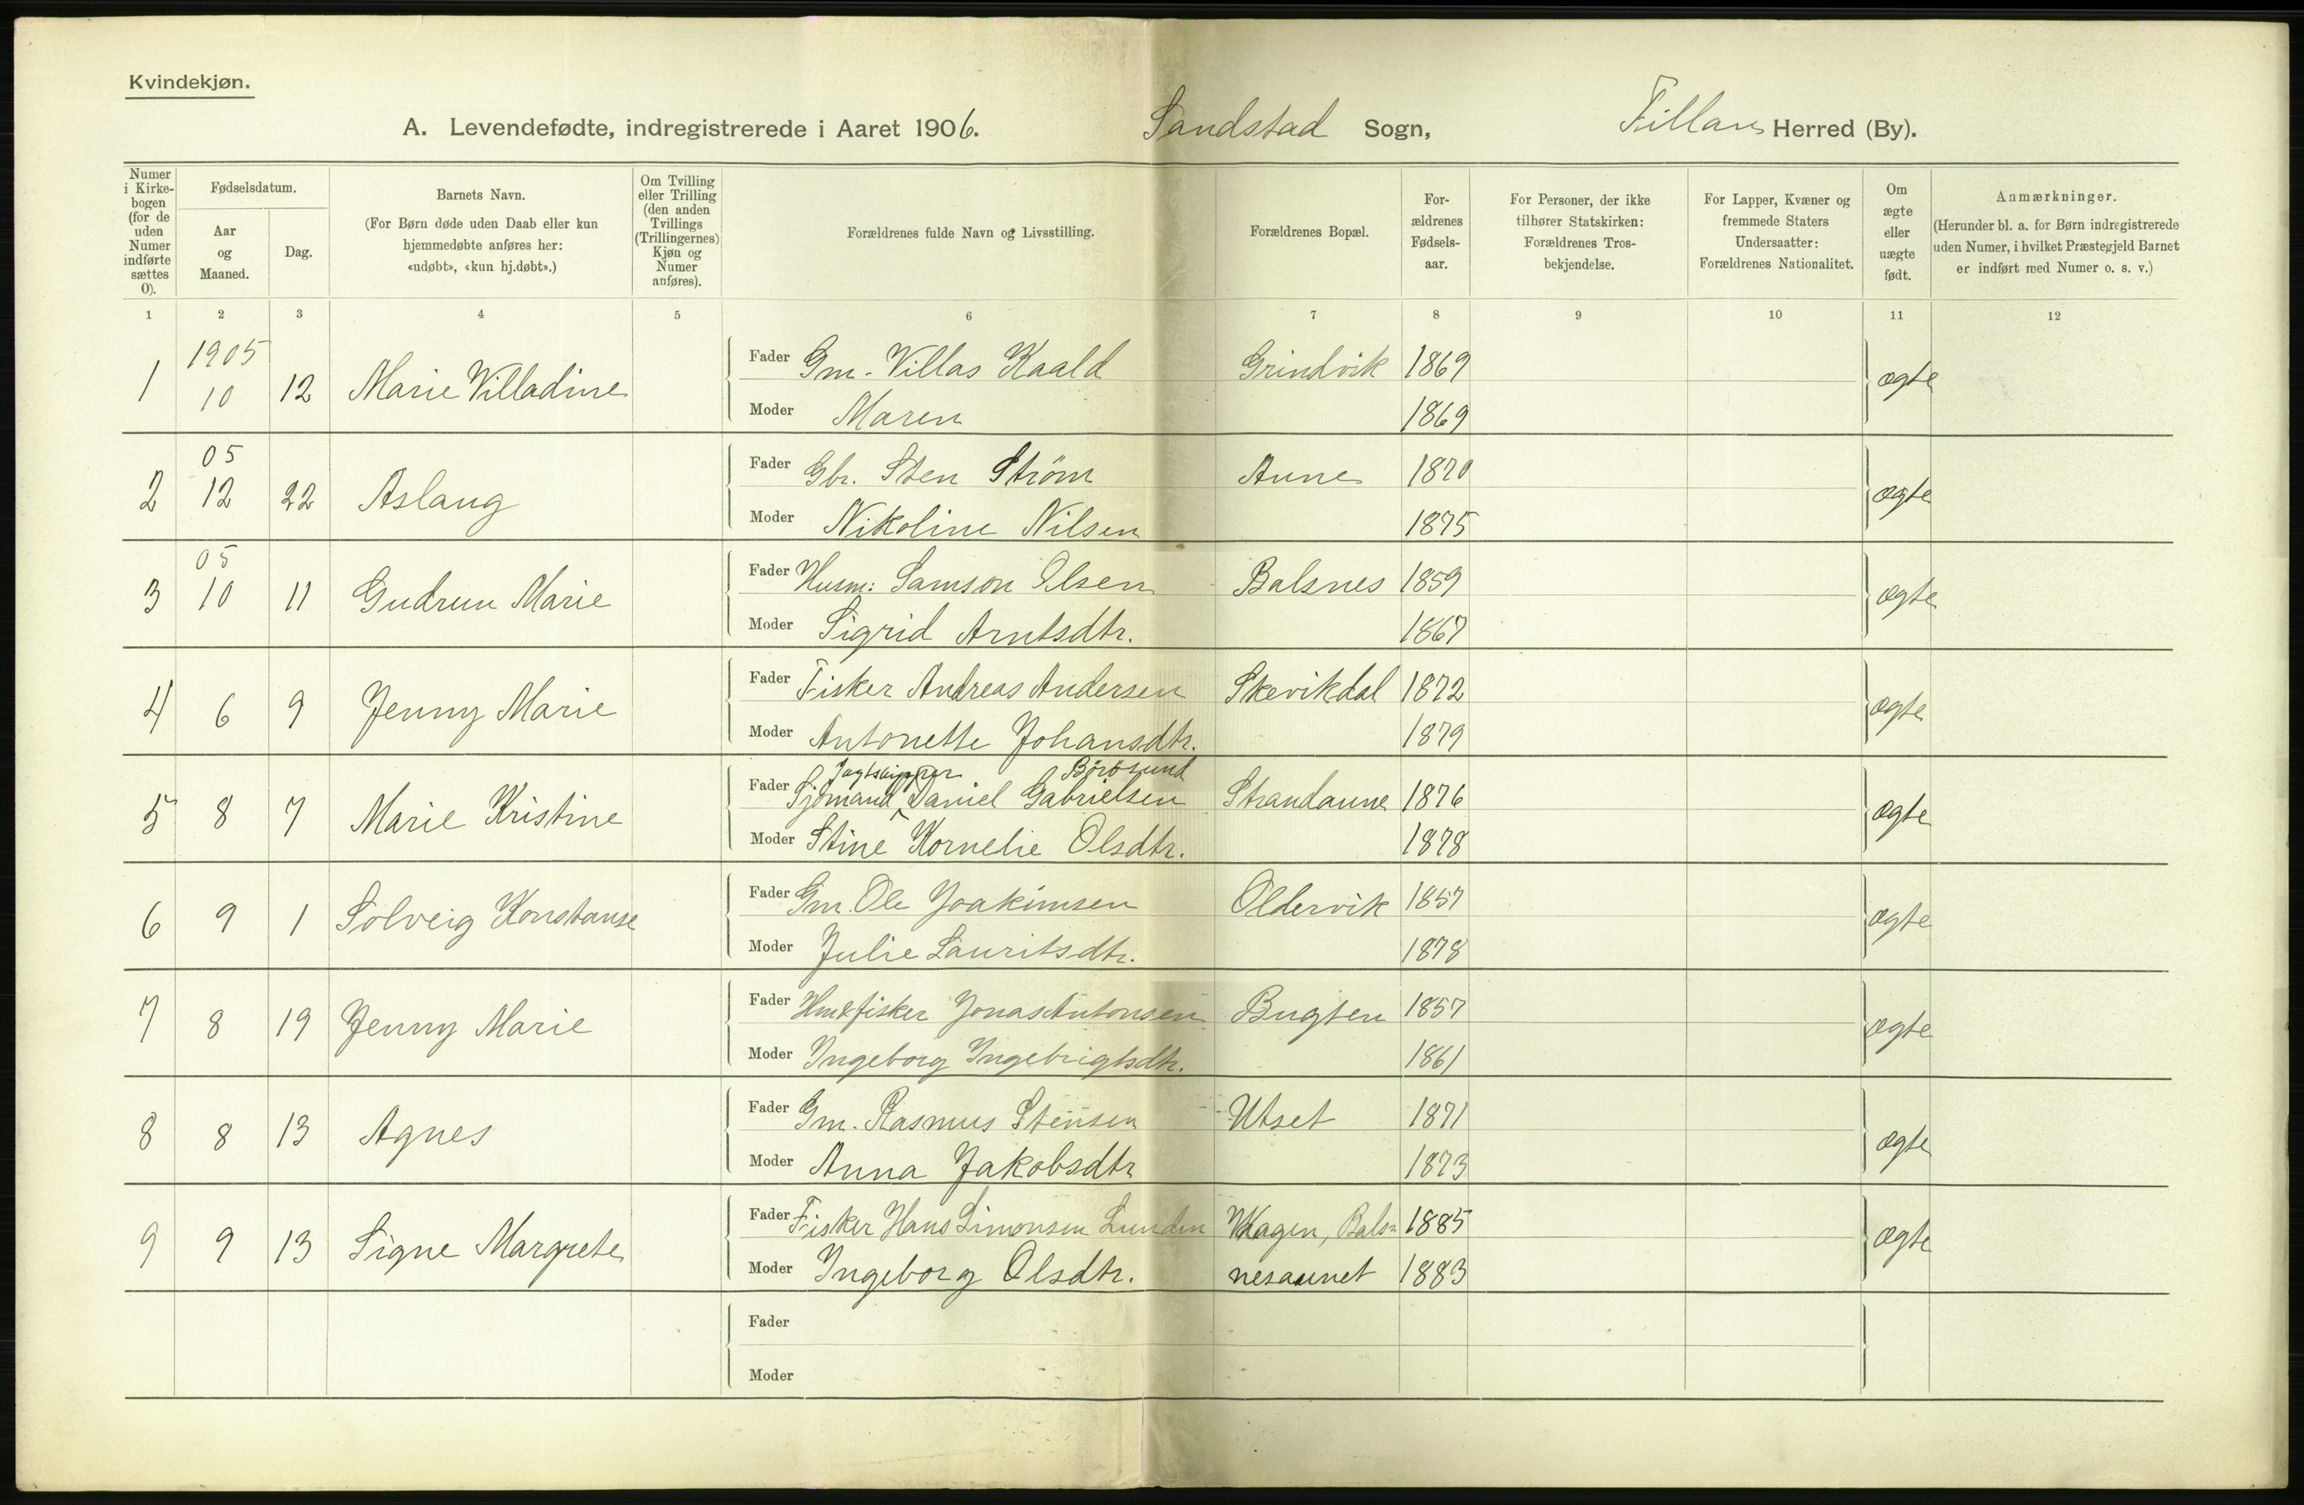 Kvindekjøn.
A. Levendefødte, indregistrerede i Aaret 1906. Sandstad Sogn, Fillan Herred (By).
Numer i Kirkebogen (for de uden Numer indførte sættes 0).
Fødselsdatum.
Aar og Maaned.
Dag.
Barnets Navn.
(For Børn døde uden Daab eller kun hjemmedøbte anføres her: «udøbt», «kun hj.døbt».)
Om Tvilling eller Trilling (den anden Tvillings (Trillingernes) Kjøn og Numer anføres).
Forældrenes fulde Navn og Livsstilling.
Forældrenes Bopæl.
Forældrenes Fødselsaar.
For Personer, der ikke tilhører Statskirken: Forældrenes Trosbekjendelse.
For Lapper, Kvæner og fremmede Staters Undersaatter: Forældrenes Nationalitet.
Om ægte eller uægte født.
Anmærkninger.
(Herunder bl. a. for Børn indregistrerede uden Numer, i hvilket Præstegjeld Barnet er indført med Numer o. s. v.)
1 2 3 4 5 6 7 8 9 10 11 12
1 1905 10 12 Marie Villadine Fader Gm. Villas Kaald Grindvik 1869 ægte
Moder Maren 1869
2 05 12 22 Aslaug Fader Gbr. Sten Ström Aune 1870 ægte
Moder Nikoline Nilsen 1875
3 05 10 11 Gudrun Marie Fader Husm: Samson Olsen Balsnes 1859 ægte
Moder Sigrid Arntsdtr. 1867
4 6 9 Jenny Marie Fader Fisker Andreas Andersen Skevikdal 1872 ægte
Moder Antonette Johansdtr. 1879
Jagtskipper Börösund
5 8 7 Marie Kristine Fader Sjömand Daniel Gabrielsen Strandaune 1876 ægte
Moder Stine Kornelie Olsdtr. 1878
6 9 1 Solveig Konstanse Fader Gm. Ole Joakimsen Oldervik 1857 ægte
Moder Julie Lauritsdtr. 1878
7 8 19 Jenny Marie Fader Hmkfisker Jonas Antonsen Bugten 1857 ægte
Moder Ingeborg Ingebrigtsdtr. 1861
8 8 13 Agnes Fader Gm. Rasmus Stensen Utset 1871 ægte
Moder Anna Jakobsdtr 1873
9 9 13 Signe Margrete Fader Fisker Hans Simonsen Lunden Hagen, Bals- 1885 ægte
Moder Ingeborg Olsdtr. nesaunet 1883
Fader
Moder